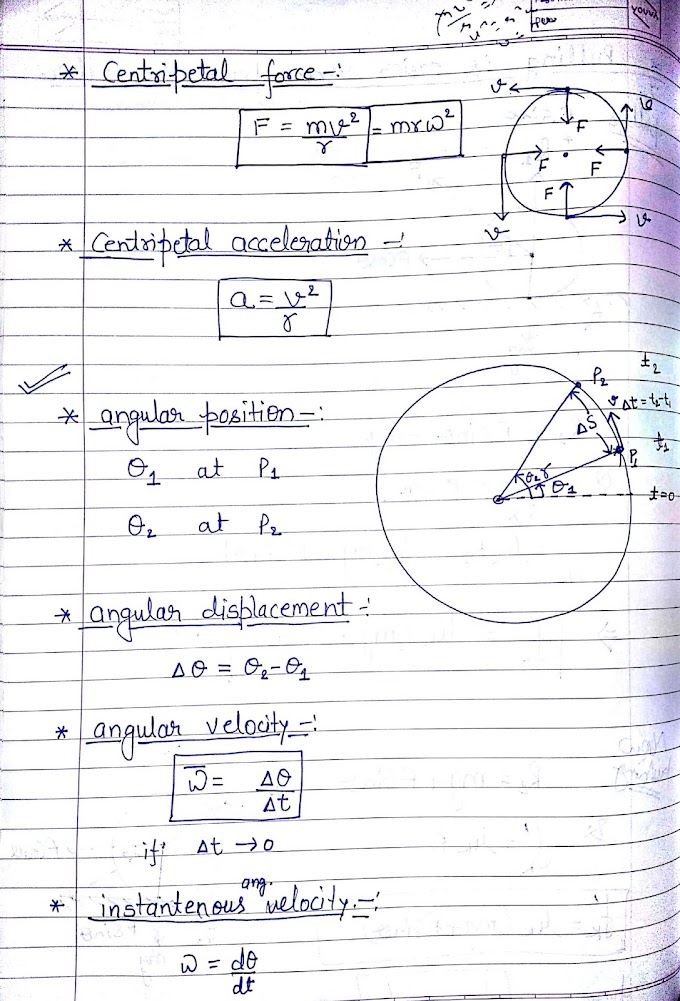 * Centripetal force -:
F = mv²/r = mrω²
v F v
F F
F
v v
* Centripetal acceleration -:
a = v²/r
* angular position -:
θ₁ at P₁
θ₂ at P₂
P₂ t₂
v Δt = t₂-t₁
ΔS
P₁ t₁
θ₂ r θ₁ t=0
* angular displacement -:
Δθ = θ₂-θ₁
* angular velocity -:
ω̅ = Δθ/Δt
if Δt → 0
* instantenous ang. velocity -:
ω = dθ/dt